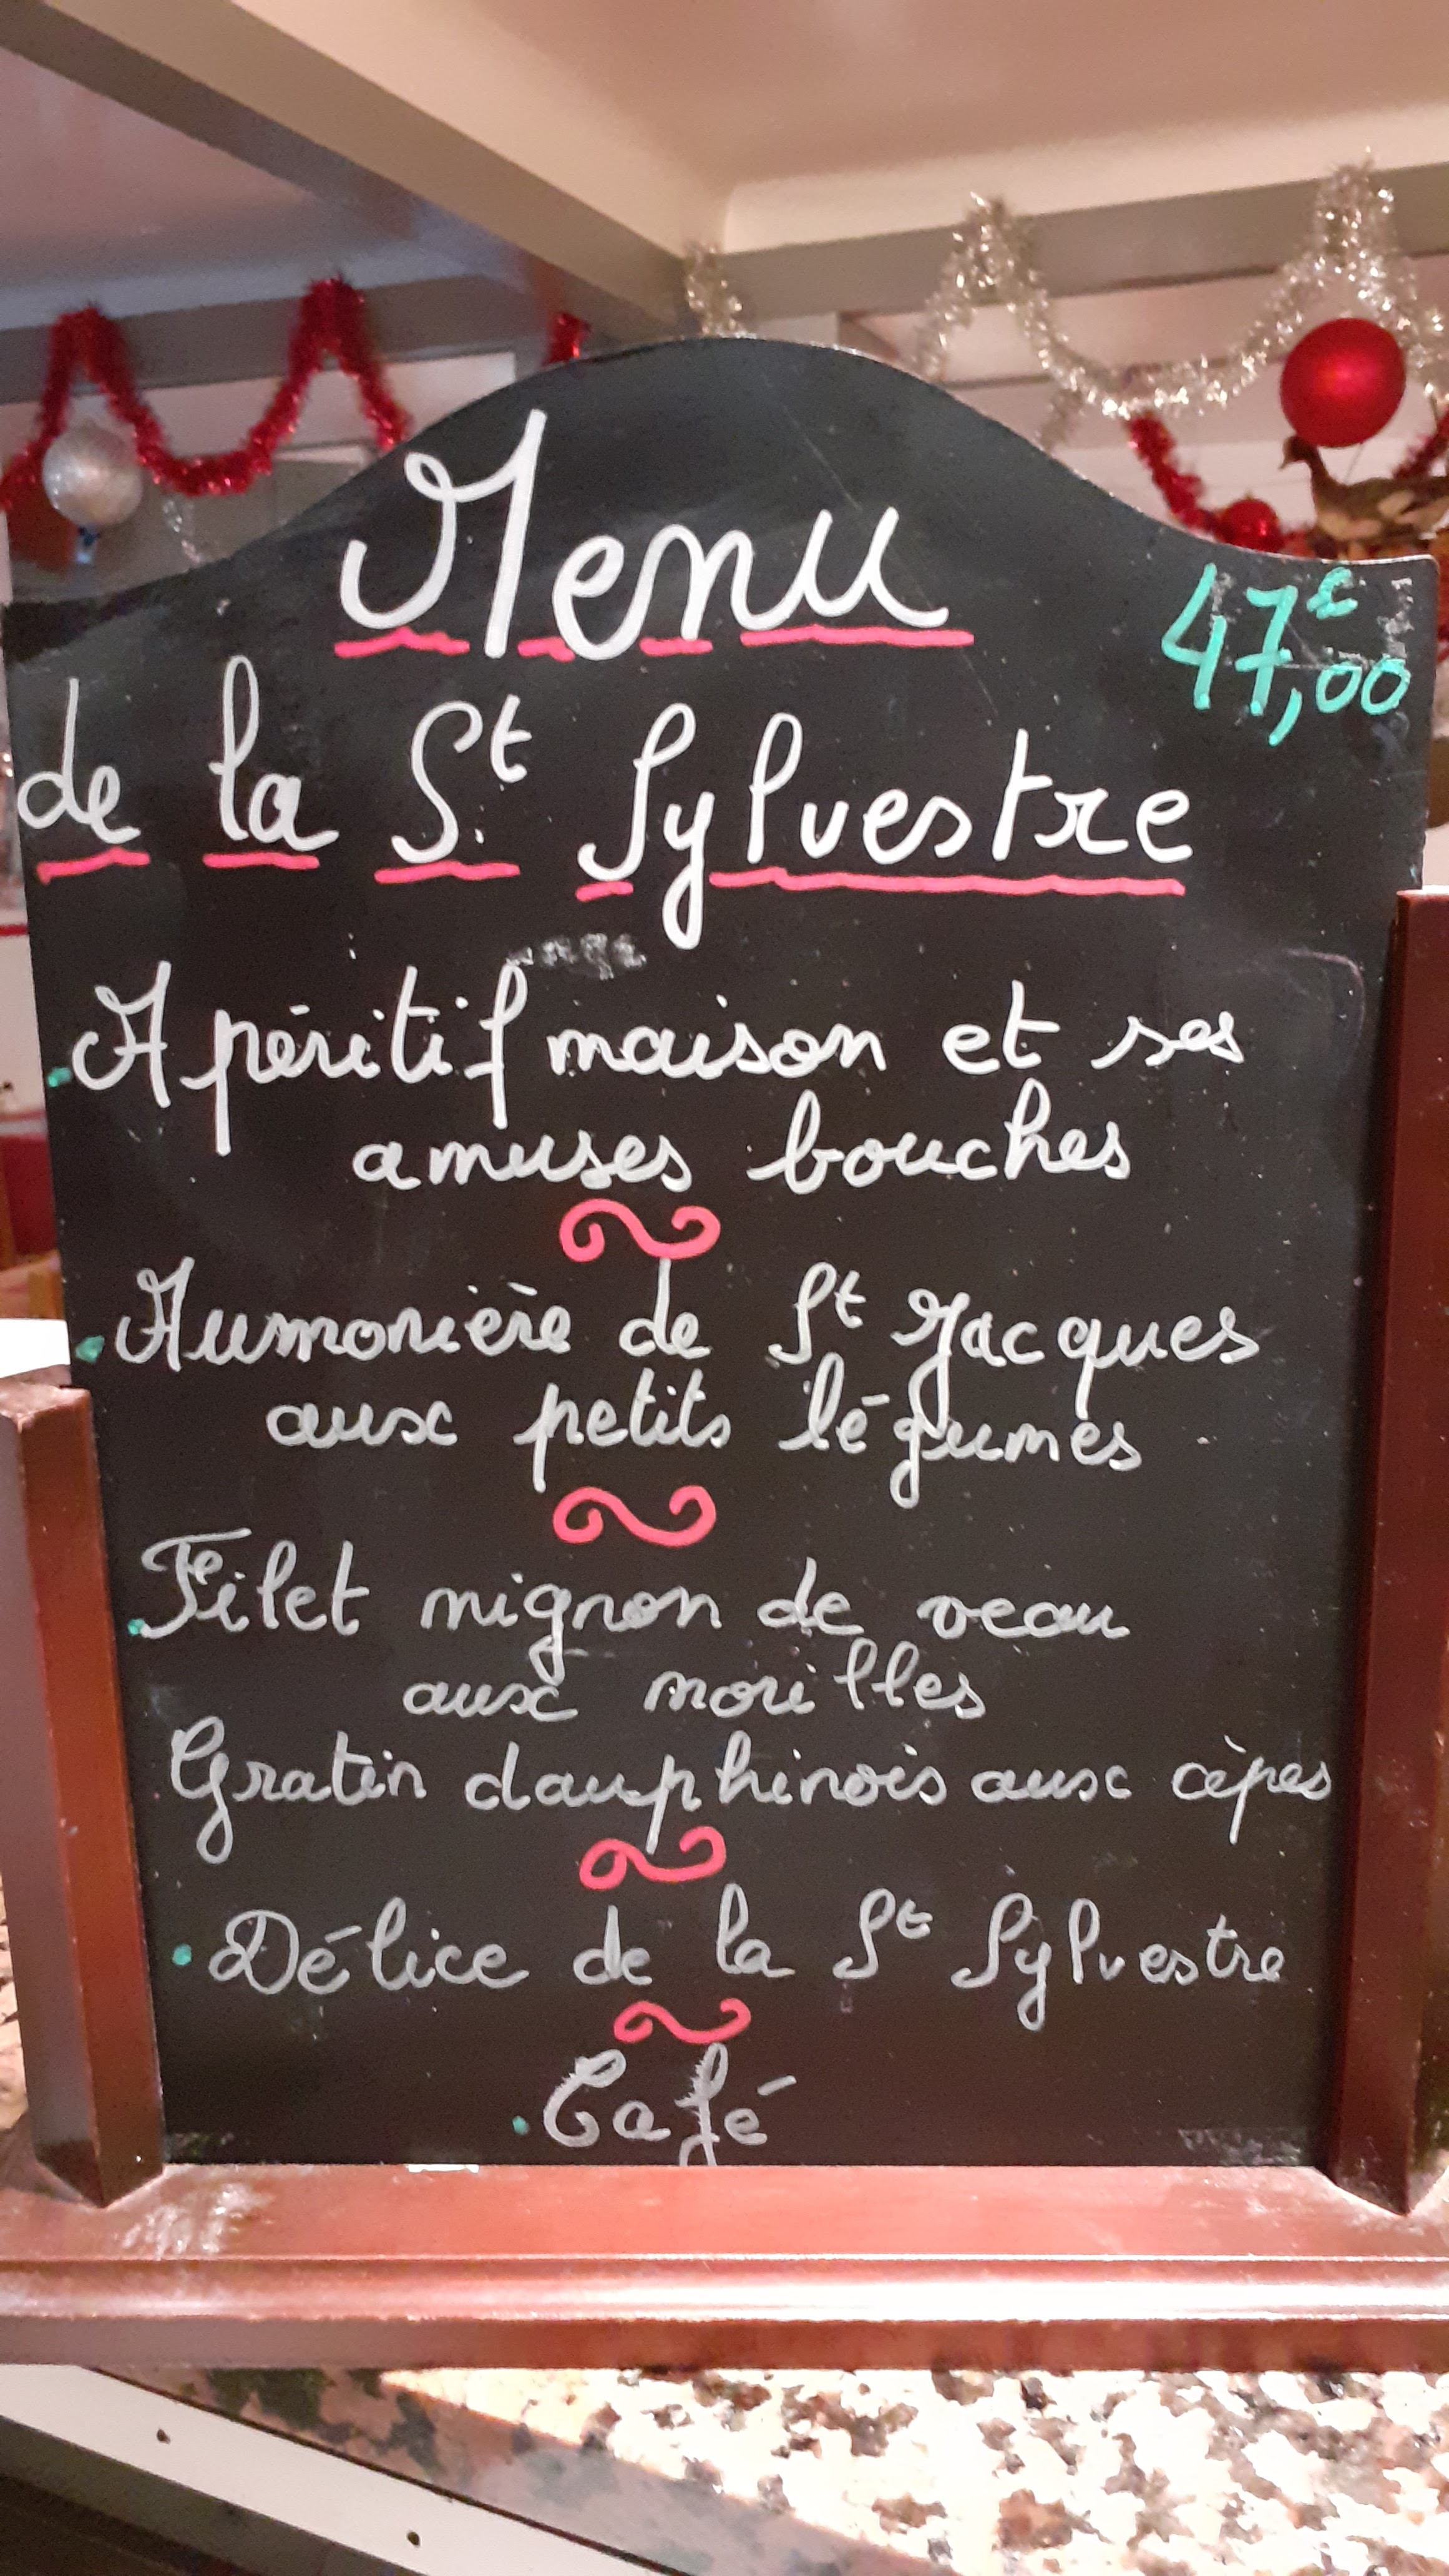 Menu
47€,00
de la St Sylvestre
. Apéritif maison et ses
amuses bouches
. Aumonière de St Jacques
aux petits légumes
. Filet mignon de veau
aux morilles
Gratin dauphinois aux cèpes
. Délice de la St Sylvestre
. Café